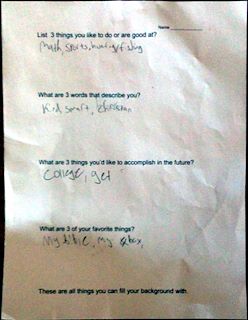 Name
List 3 things you like to do or are good at?
Math, sports, hunting/fishing
What are 3 words that describe you?
Kind smart, Christian
What are 3 things you'd like to accomplish in the future?
College, get
What are 3 of your favorite things?
My bible, my xbox,
These are all things you can fill your background with.